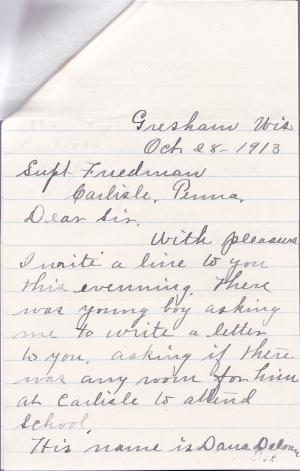 Gresham Wis
Oct 28-1913
Supt Friedman
Carlisle, Penna,
Dear Sir,
With pleasure
I write a line to you
this evenning. there
was young boy asking
me to write a letter
to you. asking if there
was any room for him
at Carlisle to attend
School.
His name is Dana